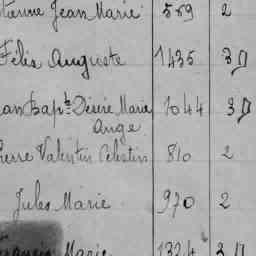 Étienne Jean Marie 559 2
Félix Auguste 1435 3
Jean Bapte Désiré Marie 1044 3
Ange
Pierre Valentin Célestin 810 2
Jules Marie 970 2
François Marie 1324 3